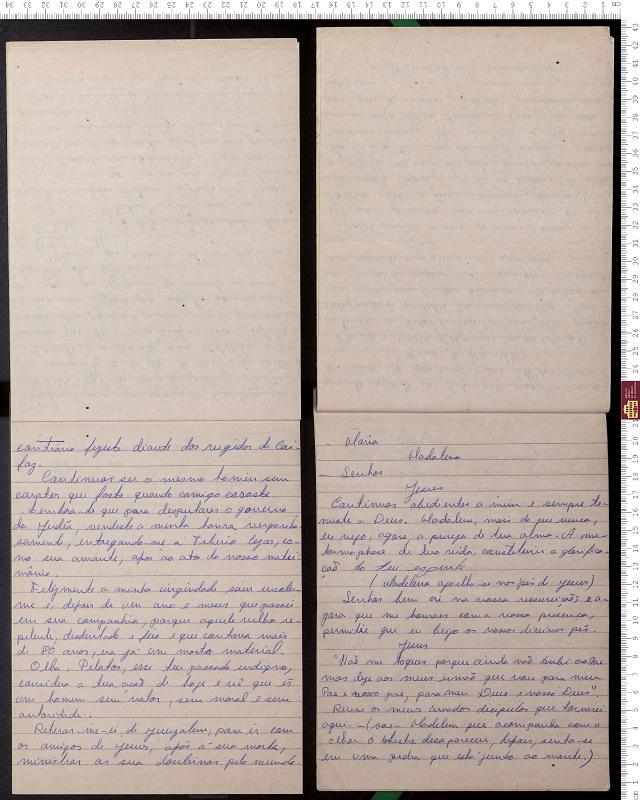 contrario fizeste diante dos rugidos de Cai-
faz.
Continuas ser o mesmo homem sem
carater que foste quando comigo casaste
Lembra-te que para desfrutares o governo
da Judéa, vendeste a minha honra vergonho-
samente, entregando-me a Tiberio Cezar, co-
mo sua amante, após ao ato do nosso matri-
mônio.
Felizmente a minha virgindade saiu incolu-
me e, depois de um ano e meses que passei
em sua companhia, porque aquele velho re-
pelente, desdentado e feio e que contava mais
de 80 anos, era já um morto material.
Olha, Pilatos, esse teu passado indigno,
considera a tua acão de hoje e vê que és
um homem sem valor, sem moral e sem
autoridade.
Retirar-me-ei de Jerusalem, para ir com
os amigos de Jesus, após a sua morte,
ministrar as sua doutrinas pelo mundo
- Maria
Madalena
- Senhor
Jesus
Continuas obediente a mim e sempre te-
meste a Deus. Madalena, mais do que nunca,
eu vejo, agora, a pureza de tua alma. A me-
tamorphose de tua vida, constituiu a glorifica-
cão do teu espirito
(Madalena ajoelha-se nos pés de Jesus)
Senhor bem cri na vossa ressureicão e a-
gora que me honraes com a vossa presenca,
permitie que eu beijo os vossos divinos pés.
Jesus
"Não me toques porque ainda não subi ao Pae,
mas dize aos meus irmão que vou para meu
Pae e vosso pae, para meu Deus e vosso Deus".
Reuna os meus amados discipulos que tornarei
aqui - (sae - Madalena que acompanha com o
olhar o Mestre desaparecer, depois, senta-se
em uma pedra que está junto ao monte.)